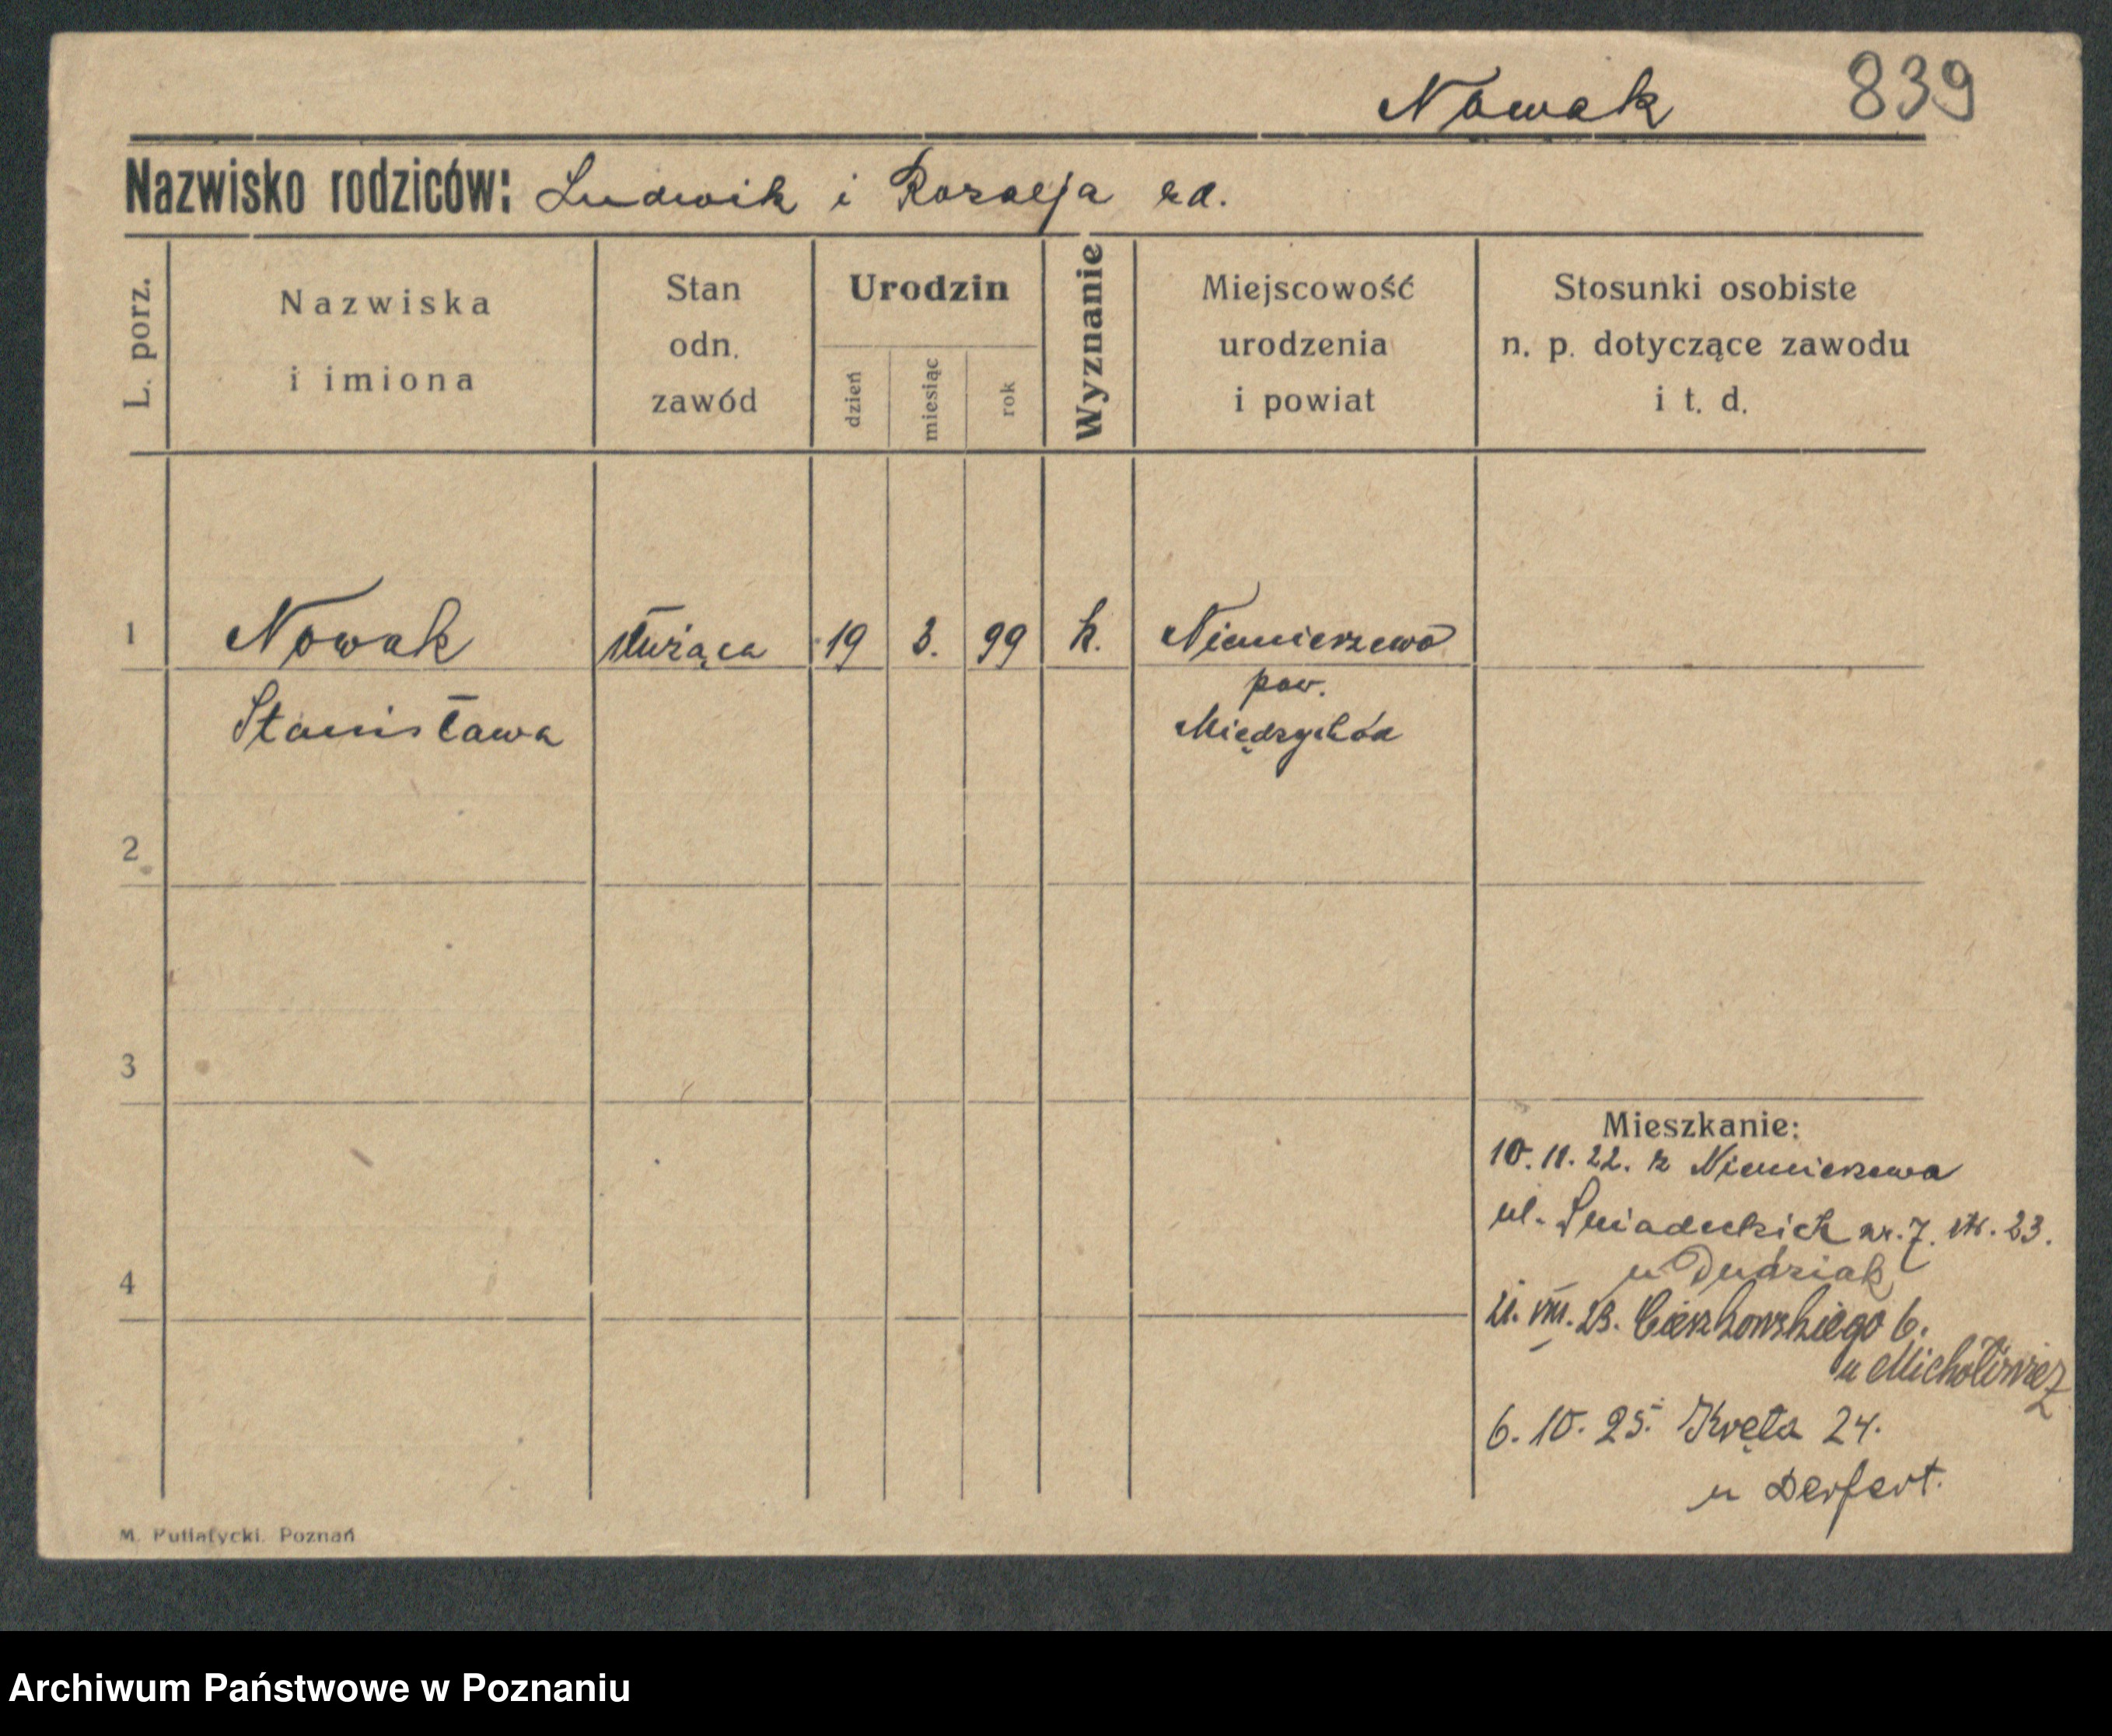 Nowak 839
Nazwisko rodziców: Ludwik i Rozalja
L. porz.
Nazwiska
i imiona
Stan
odn.
zawód
Urodzin
dzień
miesiąc
rok
Wyznanie
Miejscowość
urodzenia
i powiat
Stosunki osobiste
n. p. dotyczące zawodu
i t. d.
1 Nowak służąca 19 3. 99 k. Niemierzewo
Stanisława pow.
Międzychód
2
3
4
Mieszkanie:
10. 11. 22. z Niemierzewa
ul. Śniadeckich nr. 7. 23.
u Dudziak
VIII. 23. Cieszkowskiego 6.
u
6. 10. 25. Kręta 24.
u Derfert.
M. Putiatycki. Poznań
Archiwum Państwowe w Poznaniu